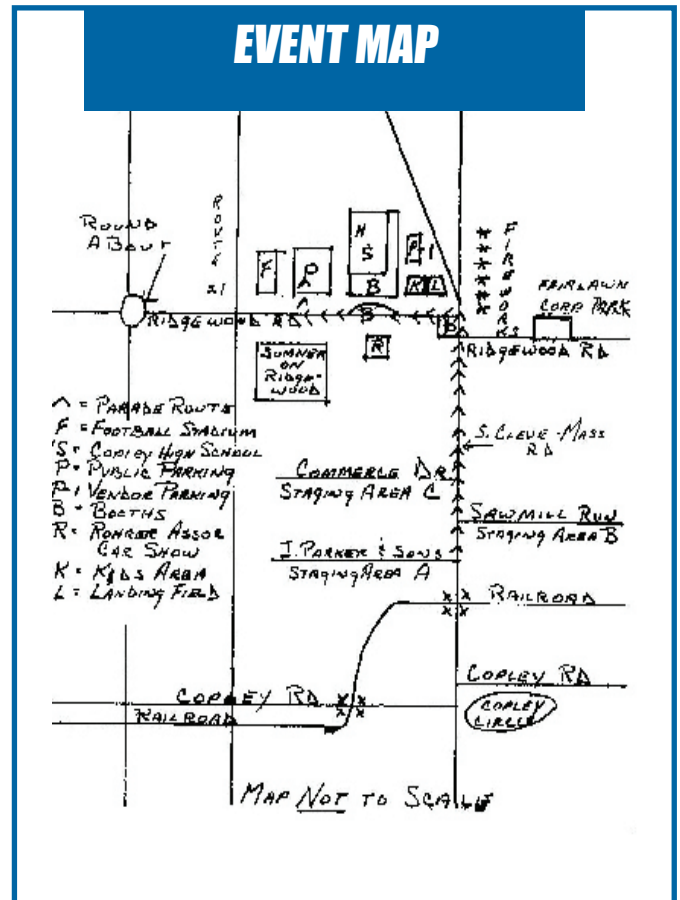 EVENT MAP
ROUND
ABOUT
ROUTE 21
F
P
H
S
B
P1
K L
FIREWORKS
FAIRLAWN
CORP PARK
RIDGEWOOD RD
B
B
RIDGEWOOD RD
SUMNER
ON
RIDGE-
WOOD
R
^ = PARADE ROUTE
F = FOOTBALL STADIUM
S = COPLEY HIGH SCHOOL
P = PUBLIC PARKING
P1 VENDOR PARKING
B = BOOTHS
R = ROHRER ASSOC
CAR SHOW
K = KIDS AREA
L = LANDING FIELD
S. CLEVE-MASS
RD
COMMERCE DR
STAGING AREA C
SAWMILL RUN
STAGING AREA B
J. PARKER & SONS
STAGING AREA A
RAILROAD
COPLEY RD
COPLEY RD
COPLEY
CIRCLE
RAILROAD
MAP NOT TO SCALE